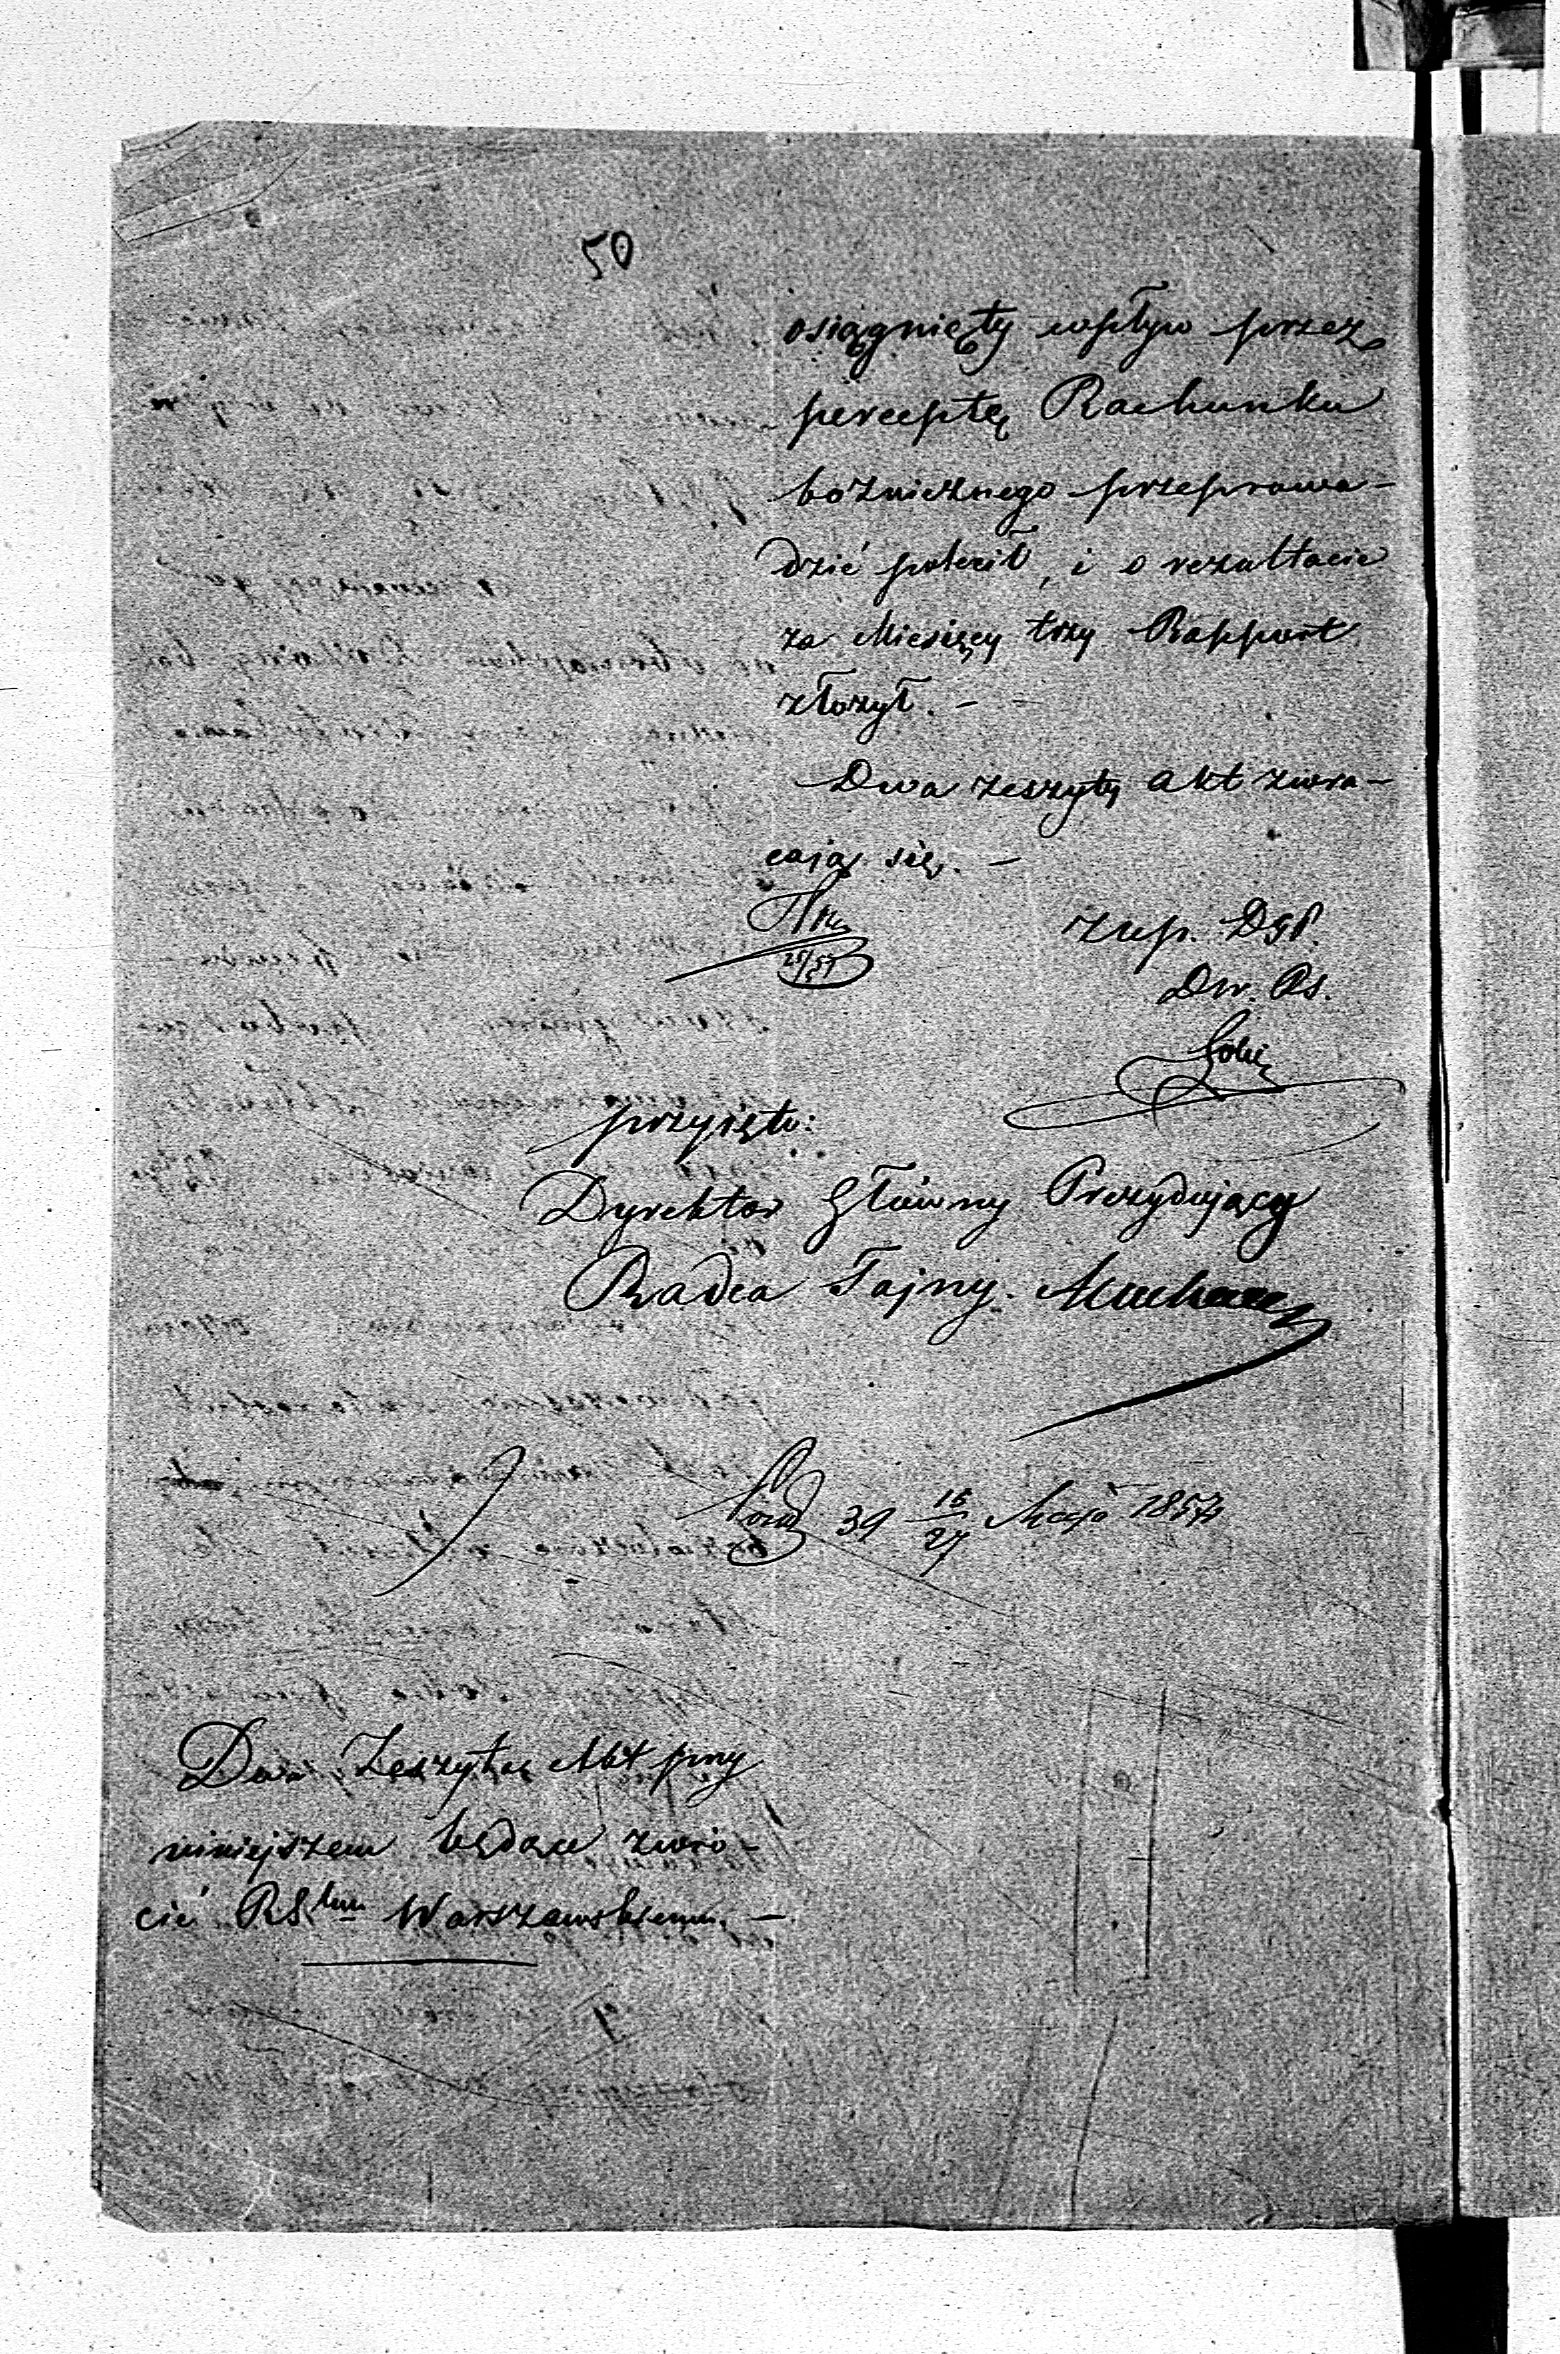 50
osiągnięty wpływ przez
perceptę Rachunku
bożnicznego przeprowa-
dzić polecił, i o rezultacie
za Miesięcy trzy Rapport
złożył. -
Dwa zeszyty akt zwra-
cają się. -
zup. DGP.
Dw. Rs.
przyjęto:
Dyrektor Główny Prezydujący
Radca Tajny.
39 15/27 Maja 1857
Dwa Zeszyty Akt przy
niniejszem będące zwró-
cić RGlnu Warszawskiemu. -